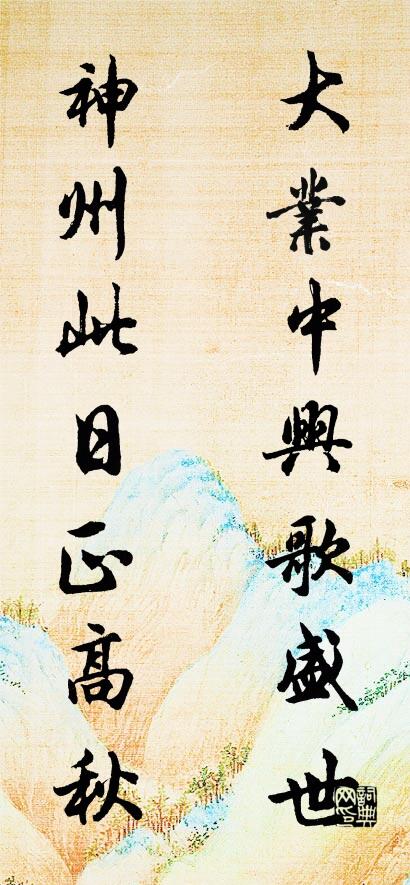 大業中興歌盛世
神州此日正高秋
詞典網